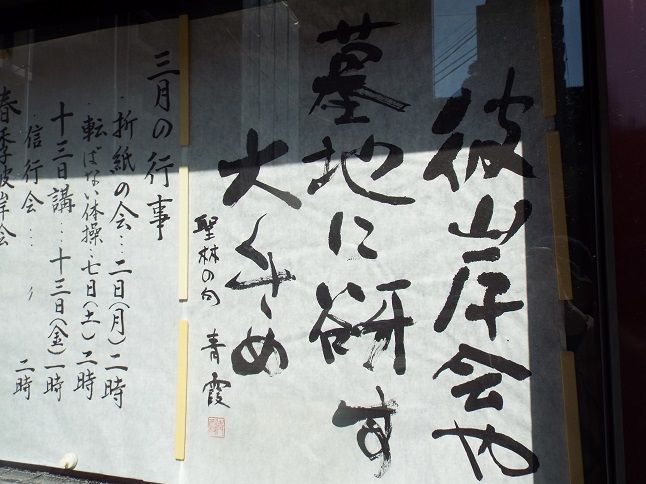 彼岸会や
墓地に谺す
大くさめ
聖林の句 青霞
三月の行事
・折紙の会…二日(月)二時
・転ばない体操…七日(土)二時
十三日講…十三日(金)一時
・信行会… 〃 二時
春季彼岸会